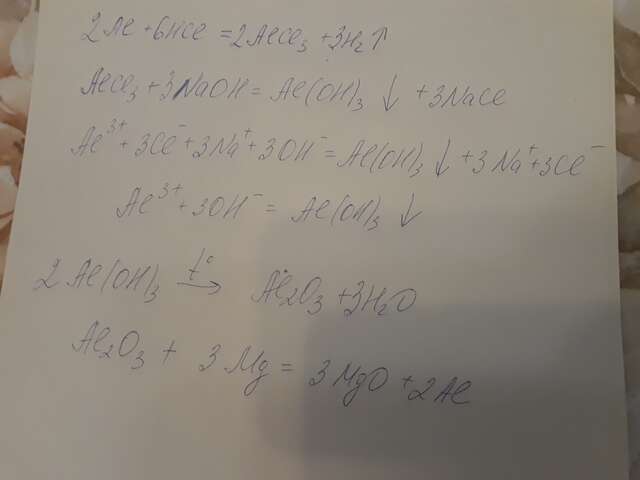 2Al + 6HCl = 2AlCl₃ + 3H₂↑
AlCl₃ + 3NaOH = Al(OH)₃ ↓ + 3NaCl
Al³⁺ + 3Cl⁻ + 3Na⁺ + 3OH⁻ = Al(OH)₃ ↓ + 3Na⁺ + 3Cl⁻
Al³⁺ + 3OH⁻ = Al(OH)₃ ↓
2Al(OH)₃ t°→ Al₂O₃ + 3H₂O
Al₂O₃ + 3Mg = 3MgO + 2Al